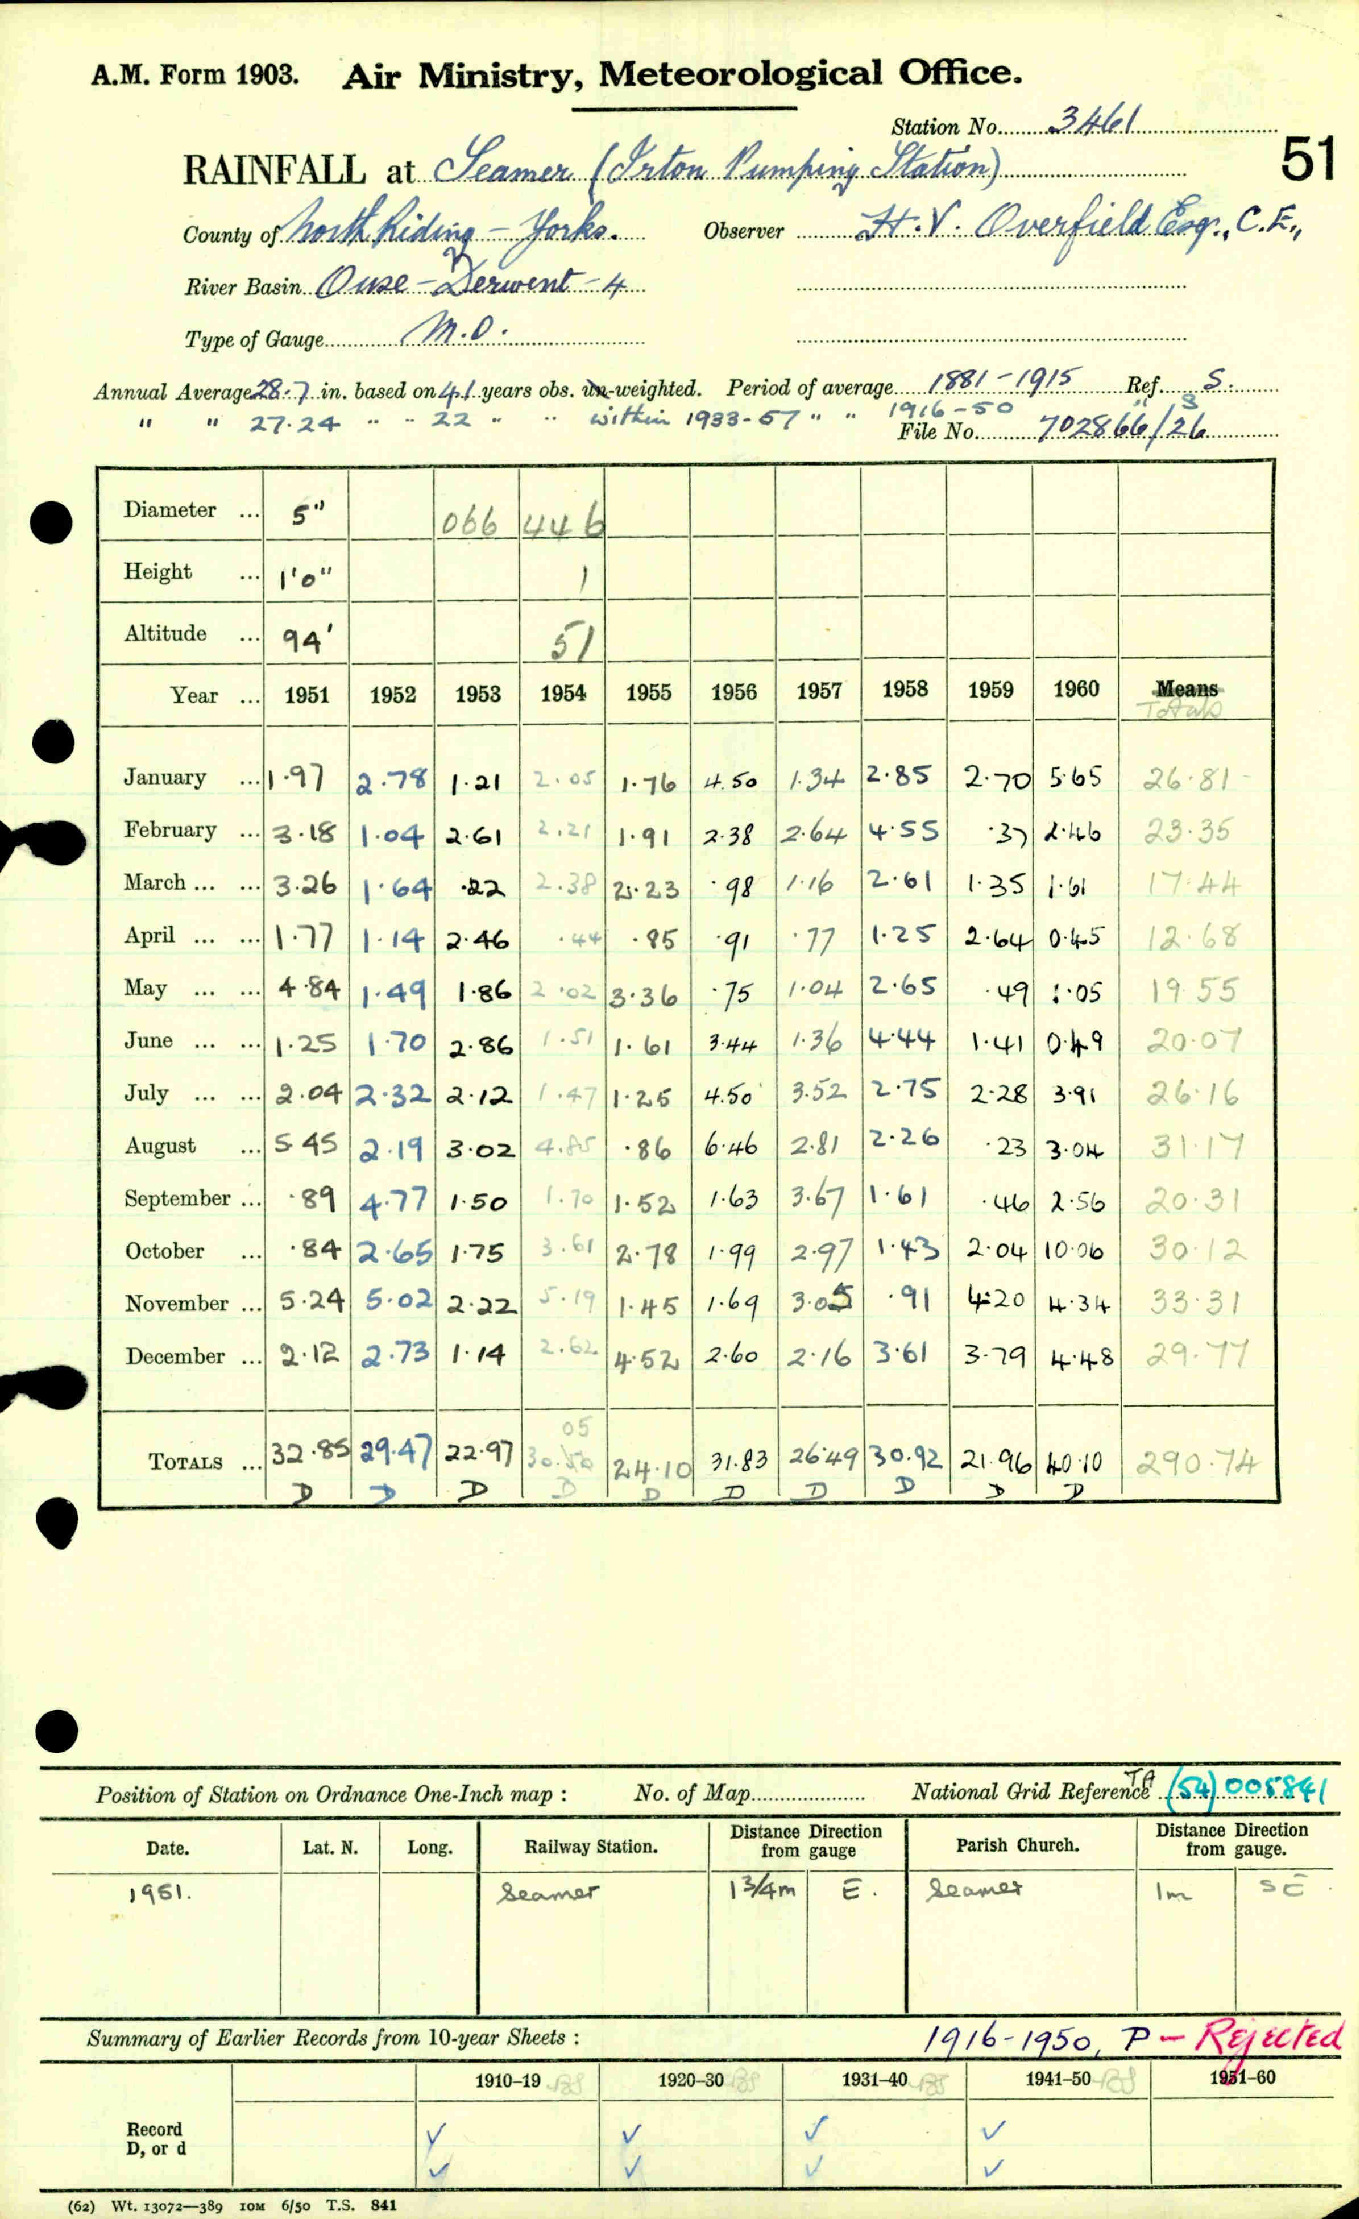 A.M. Form 1903. Air Ministry, Meteorological Office.
Station No. 3461
51
RAINFALL at Seamer (Irton Pumping Station)
County of North Riding - Yorks. Observer H.V. Overfield Esq., C.E.,
River Basin Ouse - Derwent - 4
Type of Gauge M.O.
Annual Average 28.7 in. based on 41 years obs. un-weighted. Period of average 1881-1915 Ref. S.
" " 27.24 " " 22 " " within 1933-57 " " 1916-50 " S
File No. 702866/26
Diameter ... 5" 066 446
Height ... 1'0" 1
Altitude ... 94' 51
Year ... 1951 1952 1953 1954 1955 1956 1957 1958 1959 1960 Means
Totals
January ... 1.97 2.78 1.21 2.05 1.76 4.50 1.34 2.85 2.70 5.65 26.81
February ... 3.18 1.04 2.61 2.21 1.91 2.38 2.64 4.55 .37 2.46 23.35
March ... ... 3.26 1.64 .22 2.38 2.23 .98 1.16 2.61 1.35 1.61 17.44
April ... ... 1.77 1.14 2.46 .44 .85 .91 .77 1.25 2.64 0.45 12.68
May ... ... 4.84 1.49 1.86 2.02 3.36 .75 1.04 2.65 .49 1.05 19.55
June ... ... 1.25 1.70 2.86 1.51 1.61 3.44 1.36 4.44 1.41 0.49 20.07
July ... ... 2.04 2.32 2.12 1.47 1.25 4.50 3.52 2.75 2.28 3.91 26.16
August ... 5.45 2.19 3.02 4.85 .86 6.46 2.81 2.26 .23 3.04 31.17
September ... .89 4.77 1.50 1.70 1.52 1.63 3.67 1.61 .46 2.56 20.31
October ... .84 2.65 1.75 3.61 2.78 1.99 2.97 1.43 2.04 10.06 30.12
November ... 5.24 5.02 2.22 5.19 1.45 1.69 3.05 .91 4.20 4.34 33.31
December ... 2.12 2.73 1.14 2.62 4.52 2.60 2.16 3.61 3.79 4.48 29.77
05
TOTALS ... 32.85 29.47 22.97 30.50 24.10 31.83 26.49 30.92 21.96 40.10 290.74
D D D D D D D D D D
Position of Station on Ordnance One-Inch map : No. of Map National Grid Reference TA (54) 005841
Date. Lat. N. Long. Railway Station. Distance Direction from gauge Parish Church. Distance Direction from gauge.
1951. Seamer 1 3/4m E. Seamer 1m SE
Summary of Earlier Records from 10-year Sheets : 1916-1950, P - Rejected
1910-19 1920-30 1931-40 1941-50 1951-60
Record
D, or d
✓ ✓ ✓ ✓
✓ ✓ ✓ ✓
(62) Wt. 13072—389 10M 6/50 T.S. 841